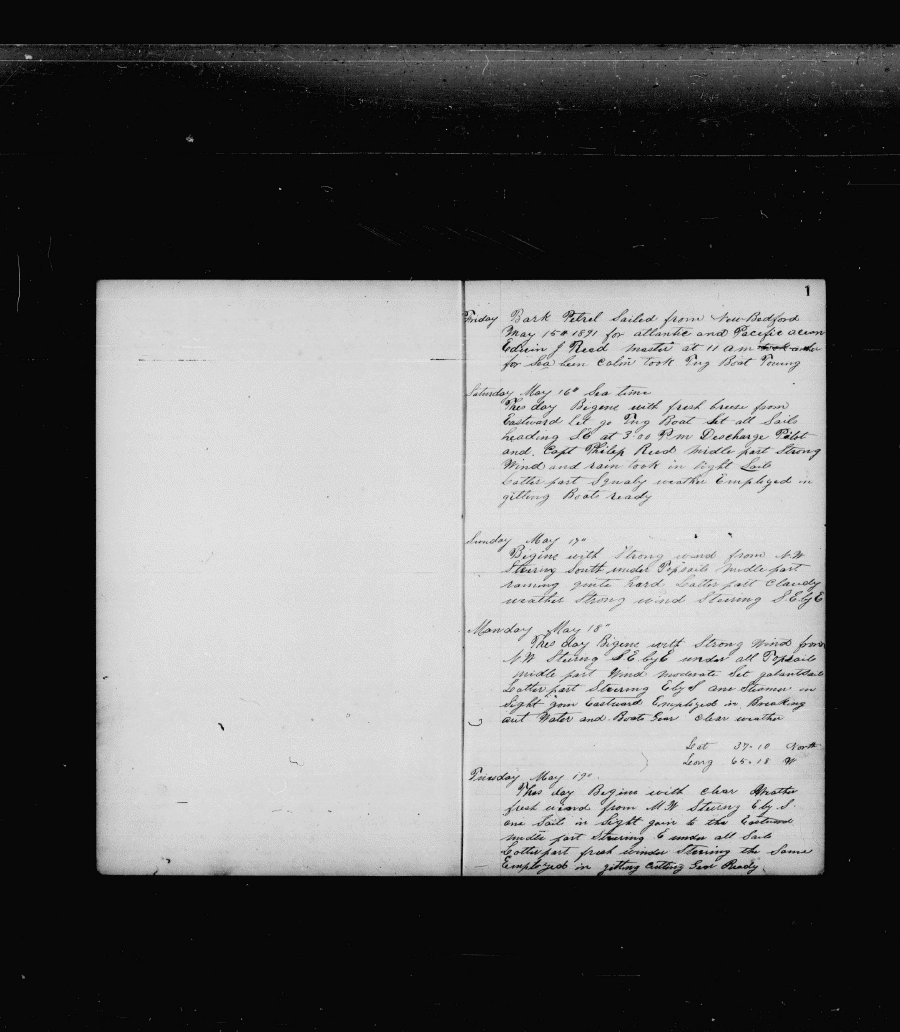 1
Friday Bark Petrel Sailed from New Bedford
May 15th 1891 for atlantic and Pacific
Edwin J Reed master at 11 am
for Sea been Calm took Tug Boat Towing
Saturday May 16th Sea time
This day Begins with fresh breeze from
Eastward let go Tug Boat Set all Sails
heading SE at 3.00 P.m Descharge Pilot
and Capt Philip Reed midle part Strong
Wind and rain took in light Sails
Latter part Squaly weather Employed in
gitting Boats ready
Sunday May 17th
Begins with Strong wind from N.W
Steering South under Topsails midle part
raining quite hard Latter part Claudy
weather Strong wind Steering S.E.byE
Monday May 18th
This day Begins with Strong Wind from
N.W Steering S.E.byE under all Topsails
midle part Wind moderate Set
Latter part Steering EbyS one Steamer in
Sight goin Eastward Employed in Breaking
out Water and Boats Gear Clear weather
Lat 37-10 North
Long 65-18 W
Tuesday May 19th
This day Begins with Clear Weather
fresh wind from N.W Steering E by S.
one Sails in Sight goin to the Eastward
midle part Steering E under all Sails
Latter part fresh winds Steering the Same
Employed in gitting Cutting Gear Ready